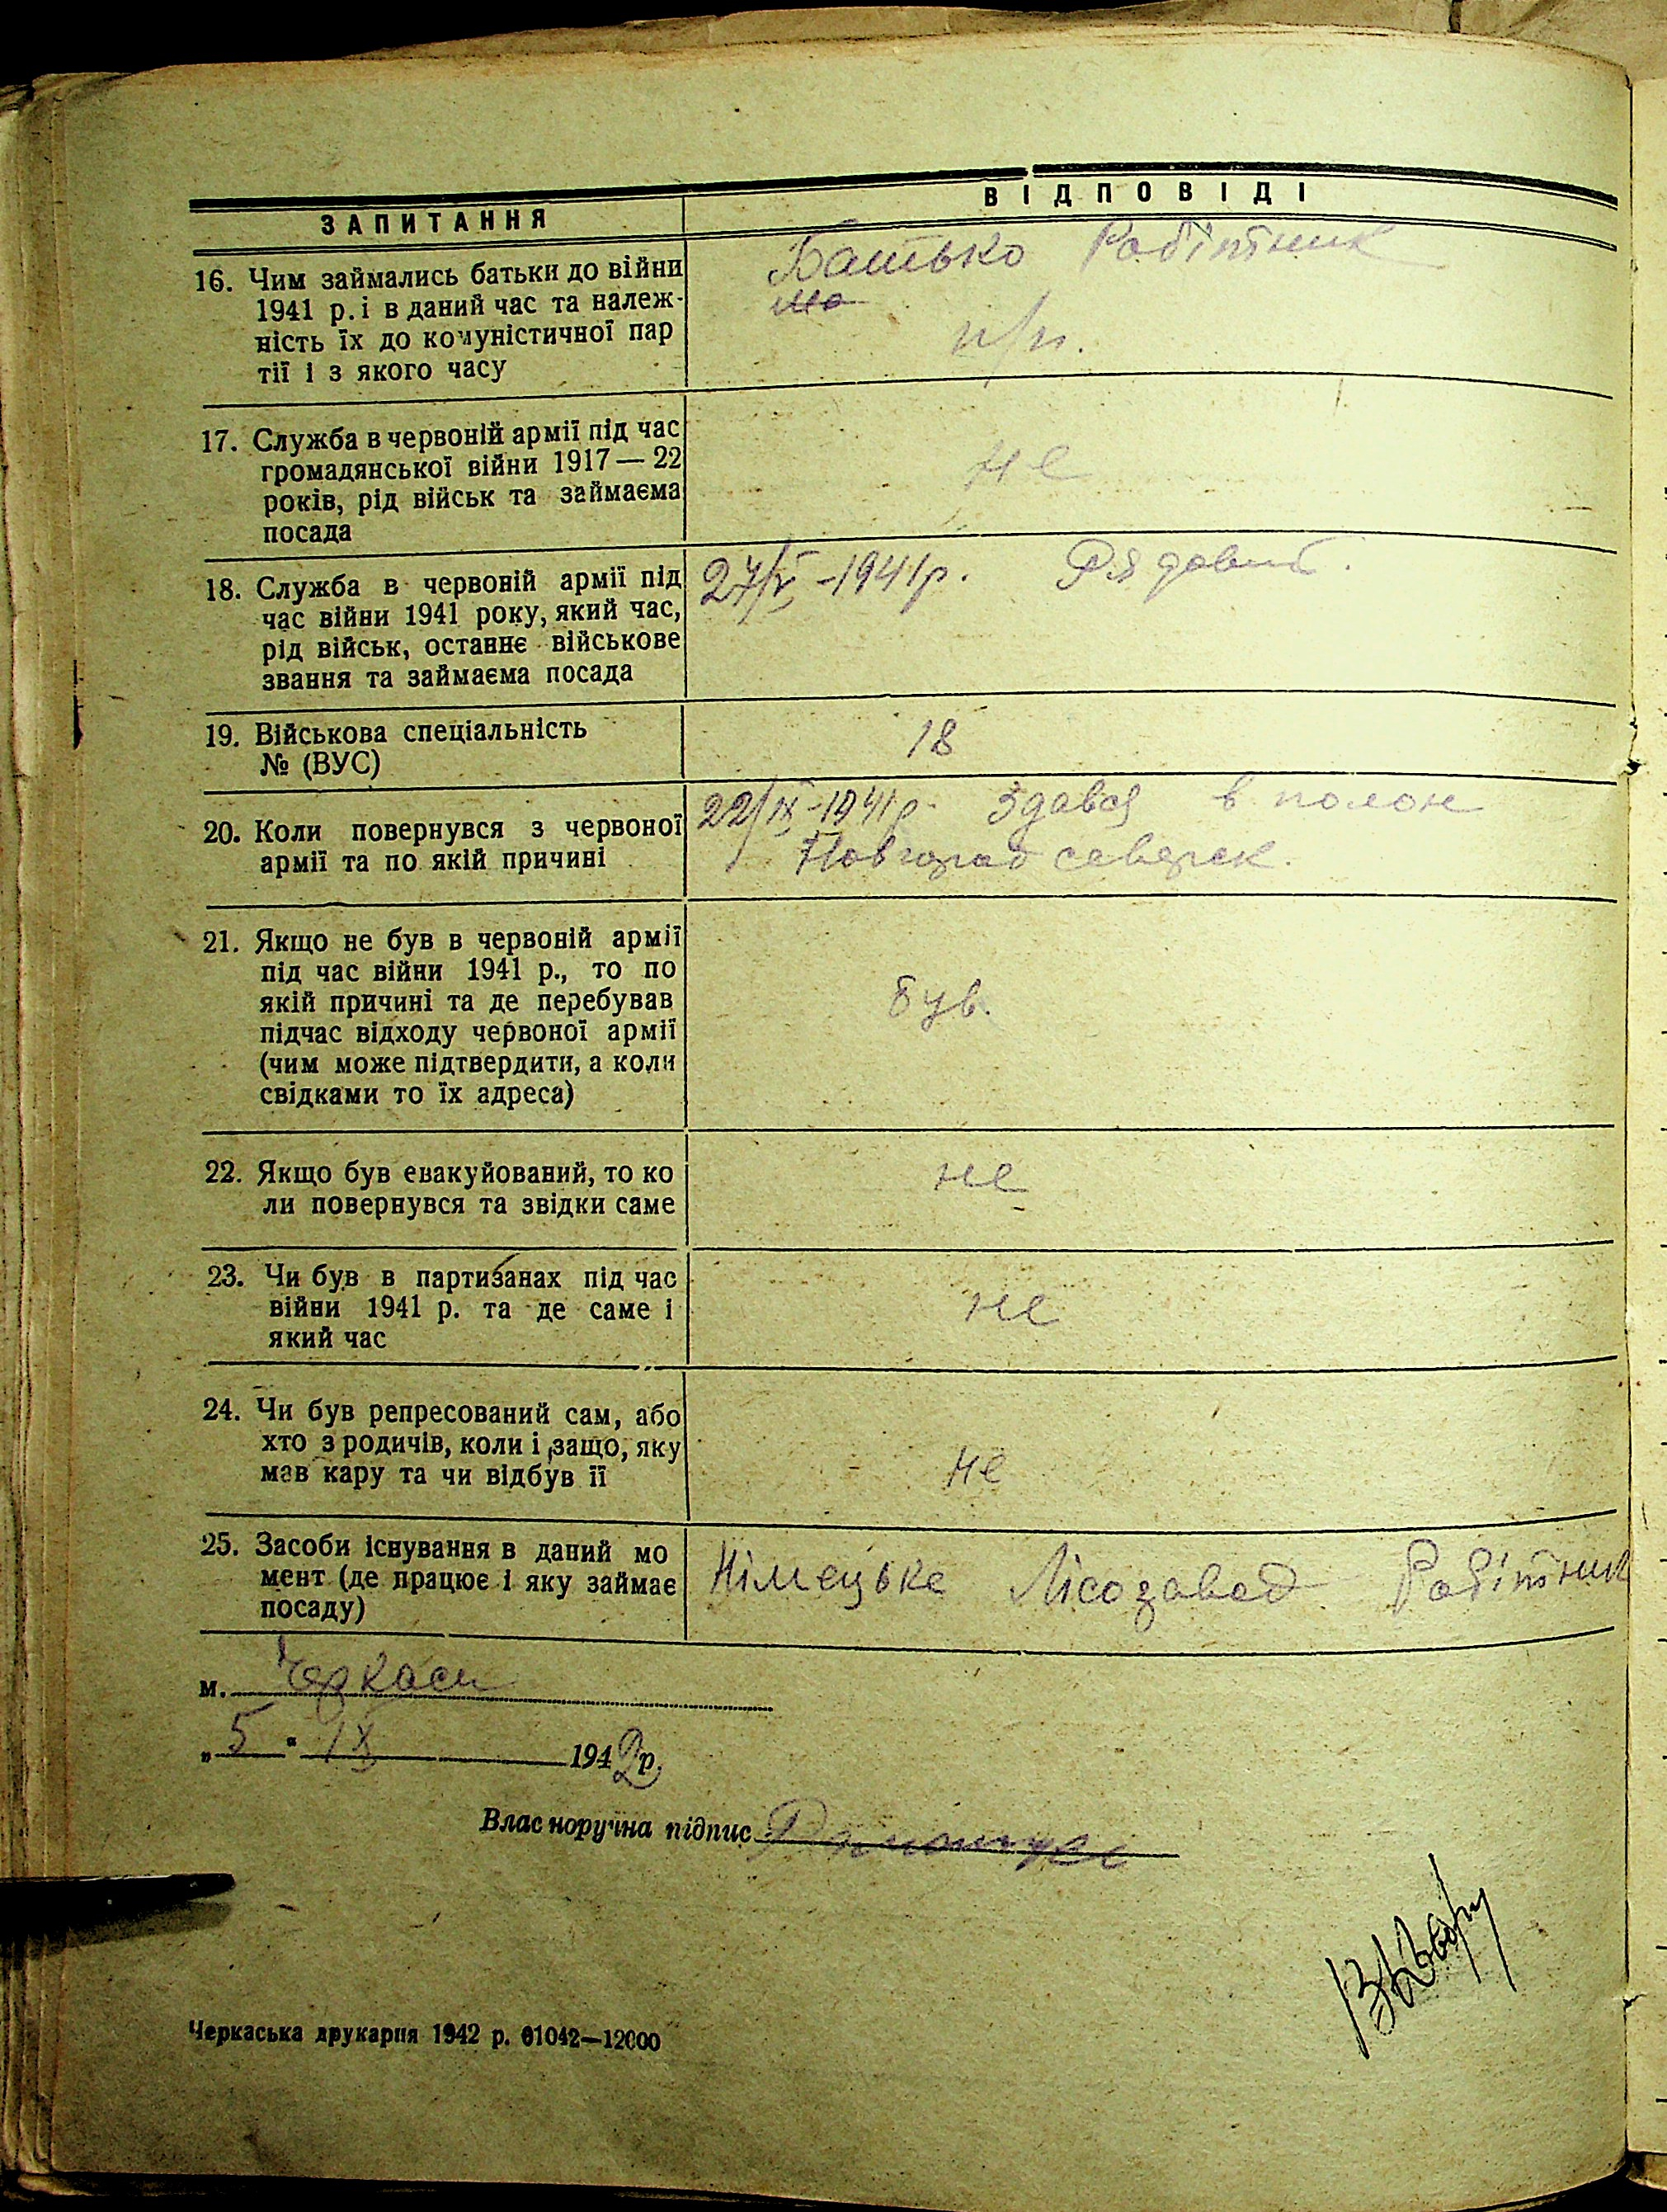 ЗАПИТАННЯ
ВІДПОВІДІ
16. Чим займались батьки до війни
1941 р. і в даний час та належ-
ність їх до комуністичної пар
тії і з якого часу
Батько Робітник
ма
п/п.
17. Служба в червоній армії під час
громадянської війни 1917—22
років, рід військ та займаєма
посада
не
18. Служба в червоній армії під
час війни 1941 року, який час,
рід військ, останнє військове
звання та займаєма посада
-1941р. Рядовий.
19. Військова спеціальність
№ (ВУС)
18
20. Коли повернувся з червоної
армії та по якій причині
22/ІХ-1941р. Здався в полон
Новгород северск.
21. Якщо не був в червоній армії
під час війни 1941 р., то по
якій причині та де перебував
підчас відходу червоної армії
(чим може підтвердити, а коли
свідками то їх адреса)
був.
22. Якщо був евакуйований, то ко
ли повернувся та звідки саме
не
23. Чи був в партизанах під час
війни 1941 р. та де саме і
який час
не
24. Чи був репресований сам, або
хто з родичів, коли і защо, яку
мав кару та чи відбув її
не
25. Засоби існування в даний мо
мент (де працює і яку займає
посаду)
Німецьке Лісозавод Робітник
м. Черкаси
„5“ ІХ 1942р.
Власноручна підпис
Черкаська друкарня 1942 р. 01042—12000